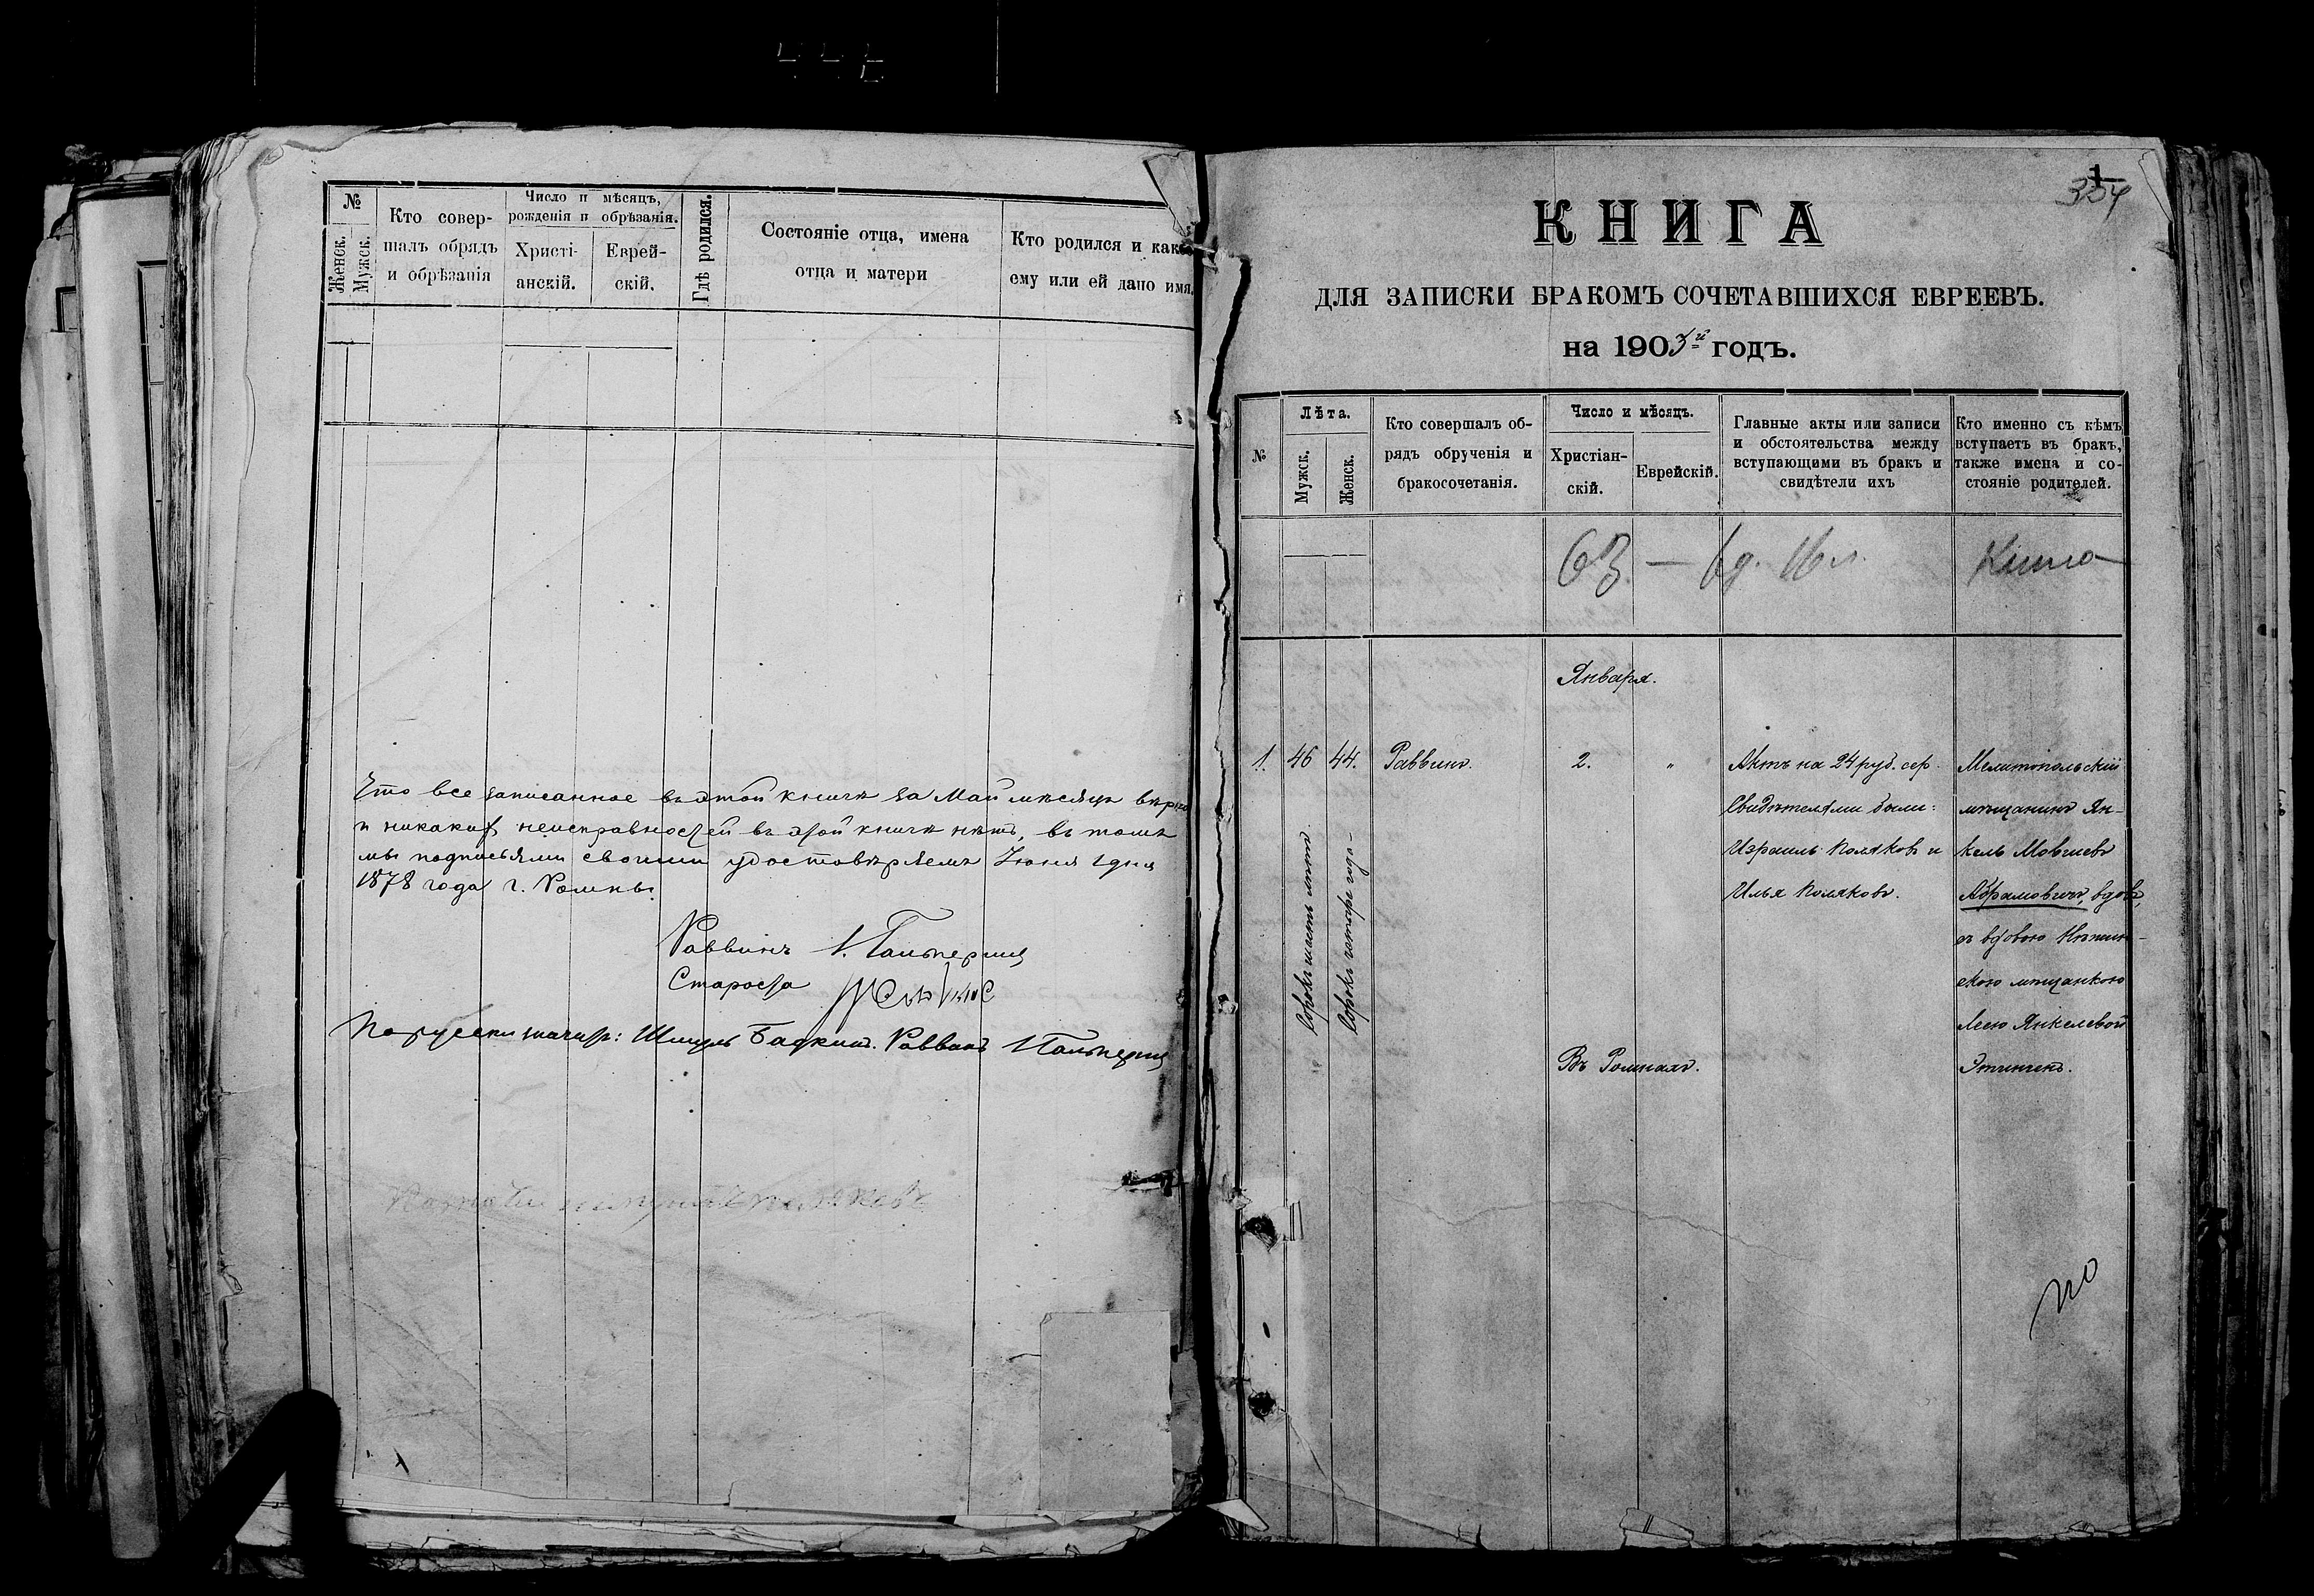 №
Женск.
Мужск.
Кто совер-
шалъ обрядъ
и обрѣзанія
Число и мѣсяцъ,
рожденія и обрѣзанія.
Христі-
анскій.
Еврей-
скій.
Гдѣ родился.
Состояніе отца, имена
отца и матери
Кто родился и какое
ему или ей дано имя.
Что все записанное въ этой книгѣ за Май мѣсяцъ вѣрно
и никакихъ неисправностей въ этой книгѣ нѣтъ, въ томъ
мы подписями своими удостовѣряемъ Іюня 1 дня
1878 года г. Ромны.
Раввинъ Гальперинъ
Староста
По русски значитъ: Шмуль Раввинъ Гальперинъ
354
КНИГА
ДЛЯ ЗАПИСКИ БРАКОМЪ СОЧЕТАВШИХСЯ ЕВРЕЕВЪ.
на 1903й годъ.
№
Лѣта.
Мужск.
Женск.
Кто совершалъ об-
рядъ обрученія и
бракосочетанія.
Число и мѣсяцъ.
Христіан-
скій.
Еврейскій.
Главные акты или записи
и обстоятельства между
вступающими въ бракъ и
свидѣтели ихъ
Кто именно съ кѣмъ
вступаетъ въ бракъ,
также имена и со-
стояніе родителей.
Января.
1. 46 44. Раввинъ. 2. "
Сорокъ шесть лѣтъ
Сорокъ четыре года
Актъ на 24 руб. сер.
Свидѣтелями были:
Израиль Поляковъ и
Илья Поляковъ.
Мелитопольскій
мѣщанинъ Ян-
кель Мовшевъ
Абрамовичъ, вдов,
съ вдовою Нѣжин-
скою мѣщанкою
Лесю Янкелевой
Въ Ромнахъ.